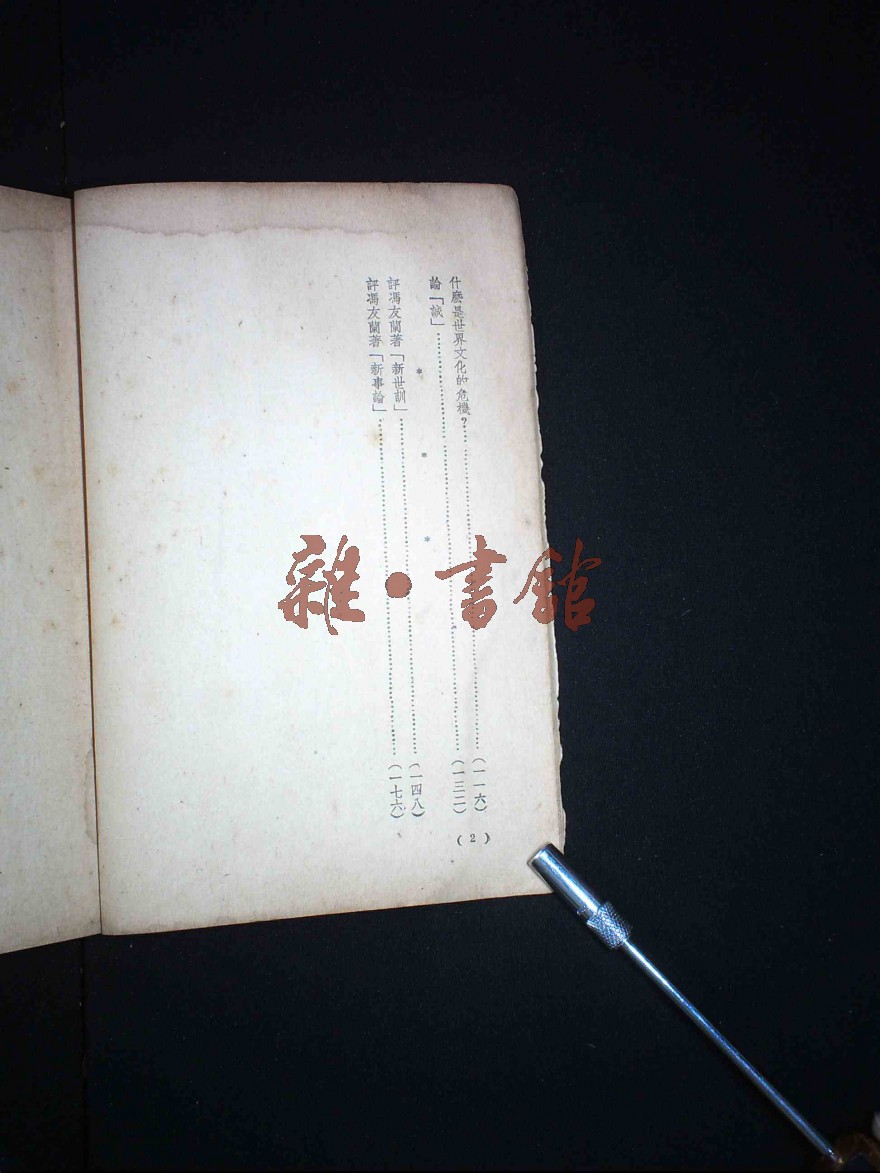 什麽是世界文化的危機？……（一一六）
論「誠」……（一三二）
＊ ＊ ＊
評馮友蘭著「新世訓」……（一四八）
評馮友蘭著「新事論」……（一七六）
（2）
雜・書館